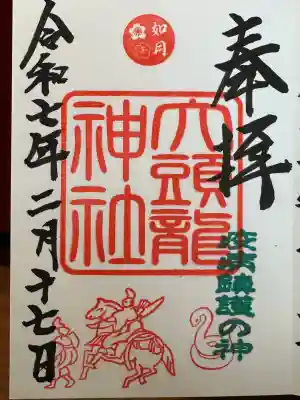 奉拝
疫病鎮護の神
如月
大頭龍
神社
令和七年二月十七日